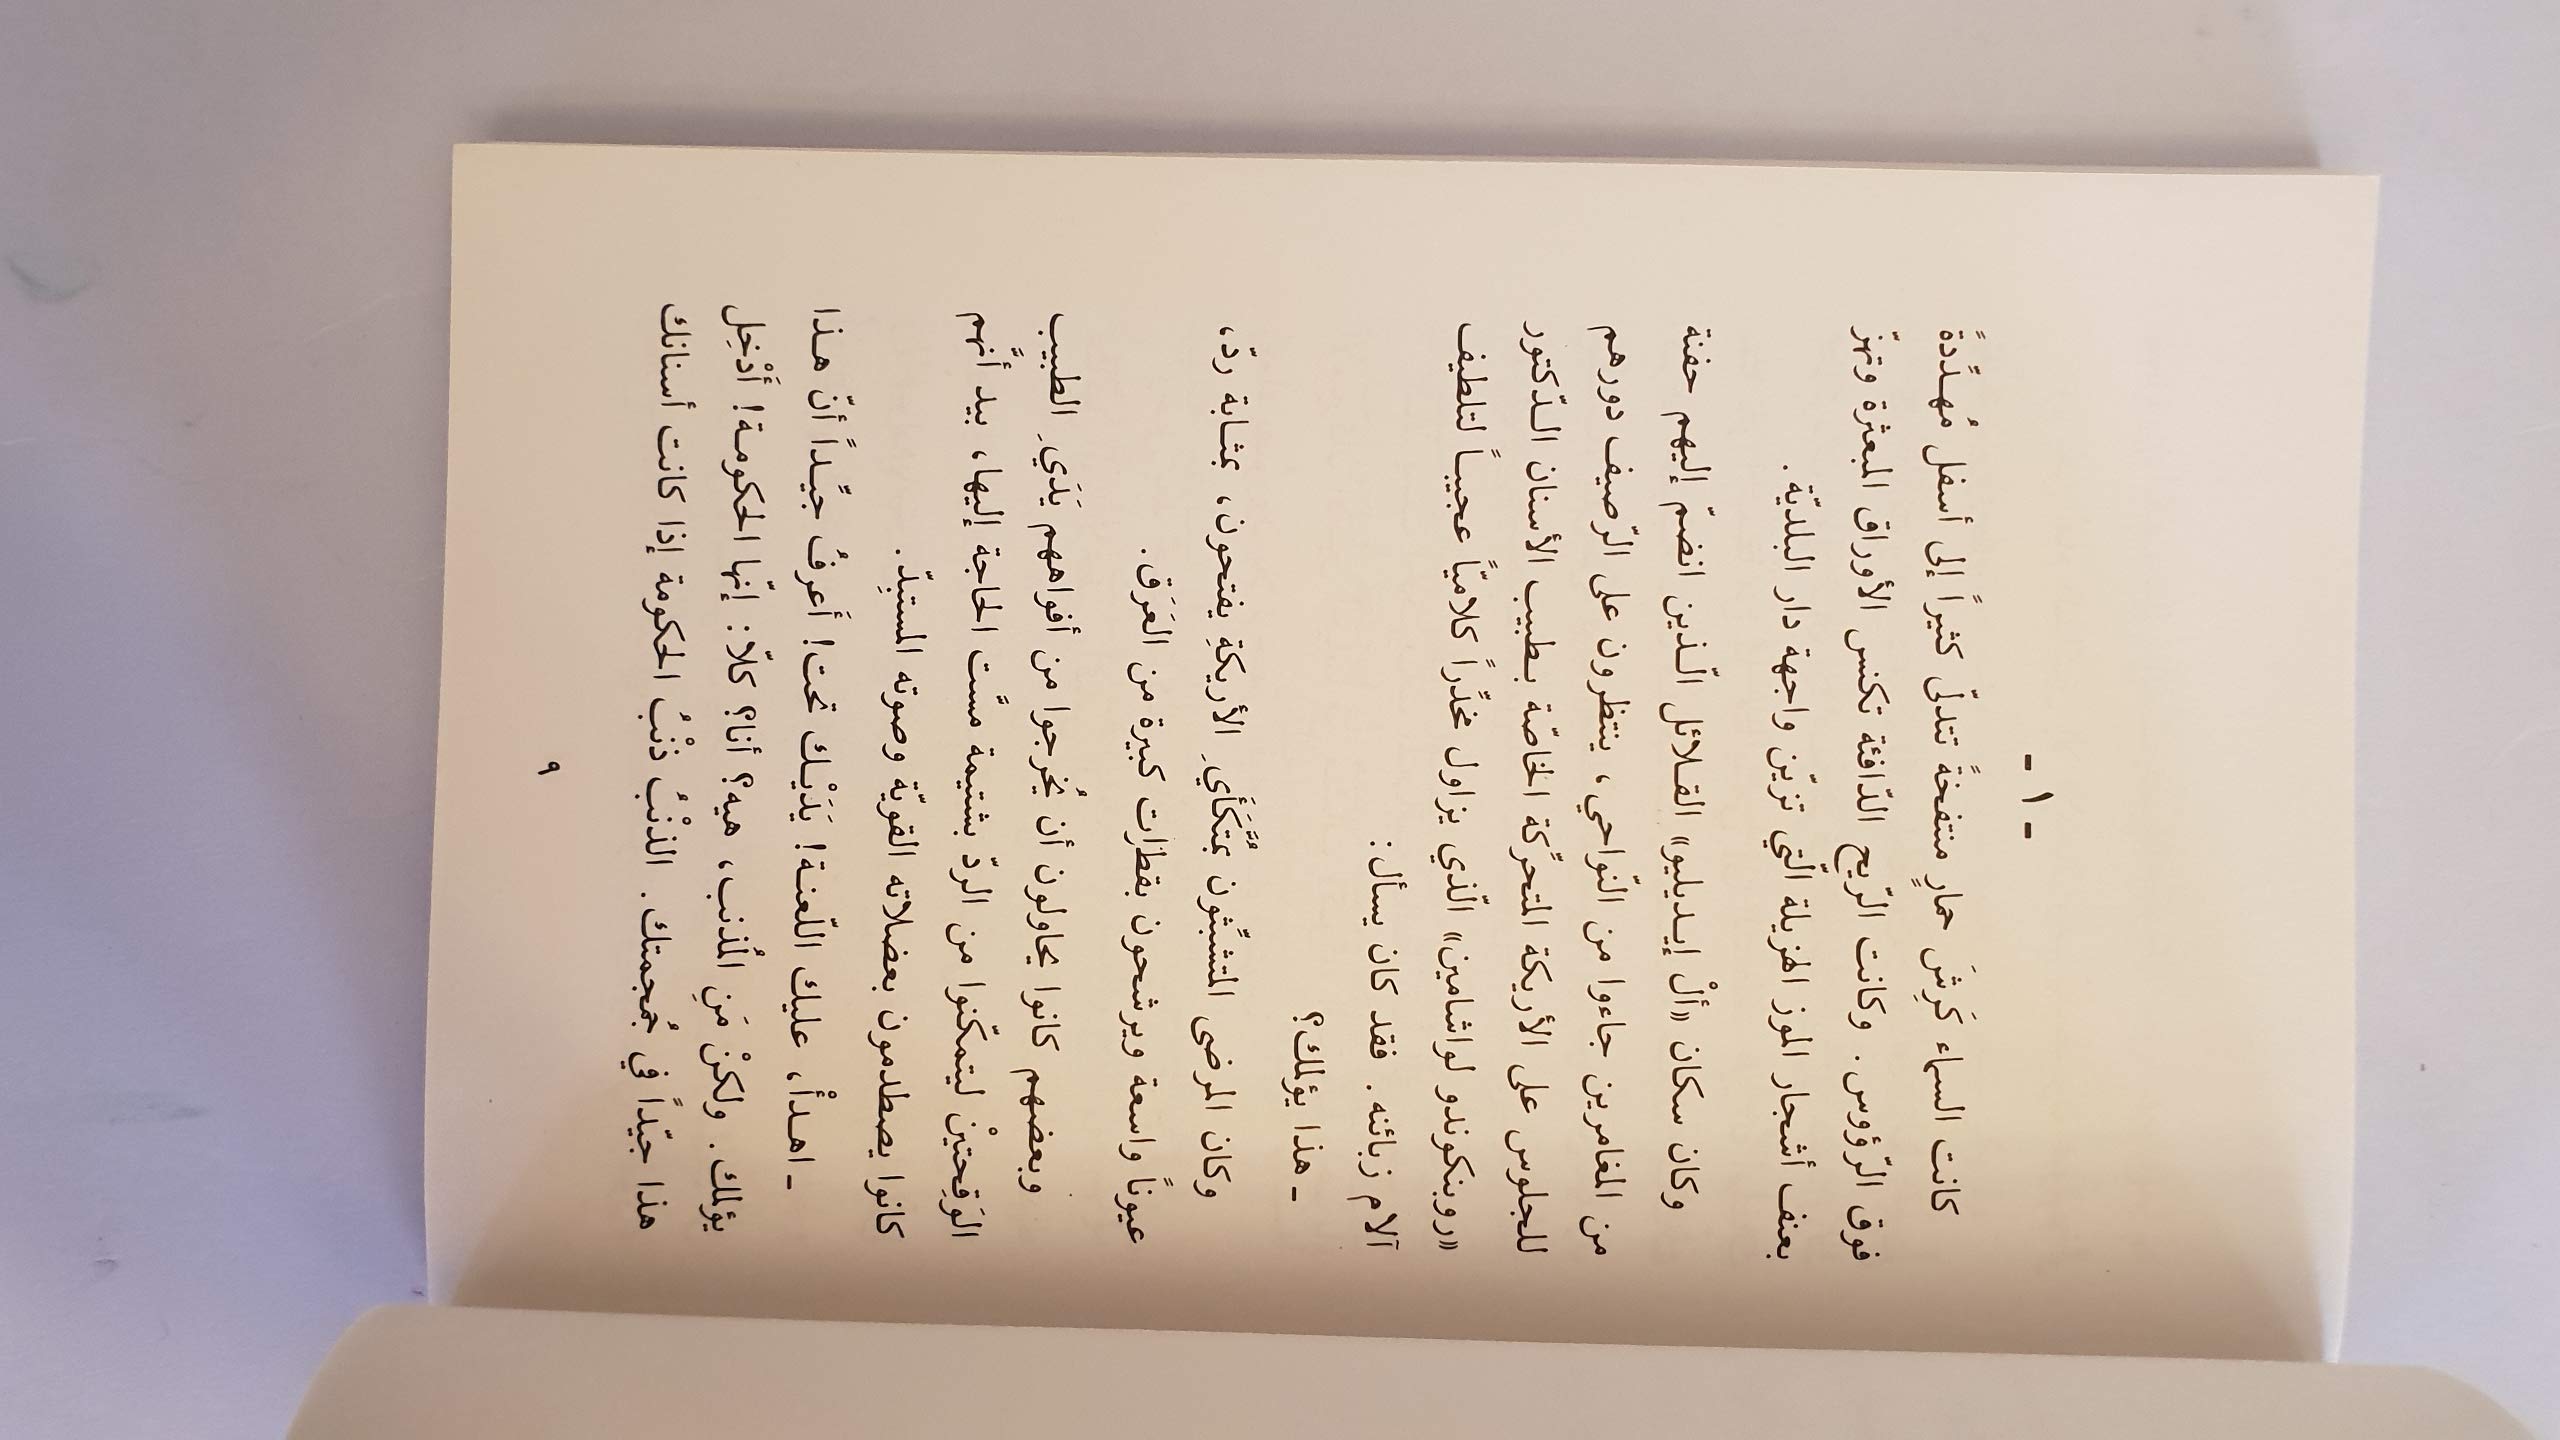 - ١ -
كانت السماء كَرِشَ حمارٍ منتفخةً تتدلّى كثيراً إلى أسفل مُهـدِّدةً
فوق الرّؤوس. وكانت الرّيح الدّافئة تكنس الأوراق المبعثرة وتهزّ
بعنف أشجار الموز الهزيلة الّتي تزيّن واجهة دار البلديّة.
وكان سكان «ألْ إيـديليو» القـلائل الّـذين انضمّ إليهم حفنة
من المغامرين جاءوا من النّواحي، ينتظرون على الرّصيف دورهم
للجلوس على الأريكة المتحرِّكة الخاصّة بـطبيب الأسنان الـدّكتور
«روبنكوندو لواشامين» الّذي يزاول مخدِّراً كلاميّاً عجيبـاً لتلطيف
آلام زبائنه. فقد كان يسأل:
ـ هذا يؤلمك؟
وكان المرضى المتشبِّثون بمُتَّكَأَيِ الأريكةِ يفتحون، بمثـابة ردّ،
عيوناً واسعة ويرشحون بقطرات كبيرة من العَرَق.
وبعضهم كانوا يحاولون أن يُخرجوا من أفواههم يَدَيِ الطبيب
الوَقِحتيْن ليتمكّنوا من الردّ بشتيمة مسَّت الحاجة إليها، بيد أنَّهم
كانوا يصطدمون بعضلاته القويّة وصوته المستبدِّ.
ـ اهـدأْ، عليك اللّعنـة! يَدَيْـك تحت! أَعرفُ جيِّـداً أنّ هـذا
يؤلمك. ولكنْ مَنِ المُذنب، هيه؟ أنا؟ كلّا: إنّها الحكومـة! أَدْخِل
هذا جيّـداً في جُمجمتك. الذنْبُ ذنْبُ الحكومة إذا كانت أسنانك
٩